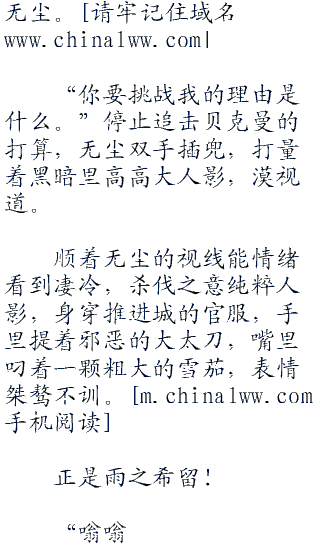 无尘。[请牢记住域名
www.china1ww.com|
“你要挑战我的理由是
什么。”停止追击贝克曼的
打算，无尘双手插兜，打量
着黑暗里高高大人影，漠视
道。
顺着无尘的视线能情绪
看到凄冷，杀伐之意纯粹人
影，身穿推进城的官服，手
里提着邪恶的大太刀，嘴里
叼着一颗粗大的雪茄，表情
桀骜不训。[m.china1ww.com
手机阅读]
正是雨之希留！
“嗡嗡